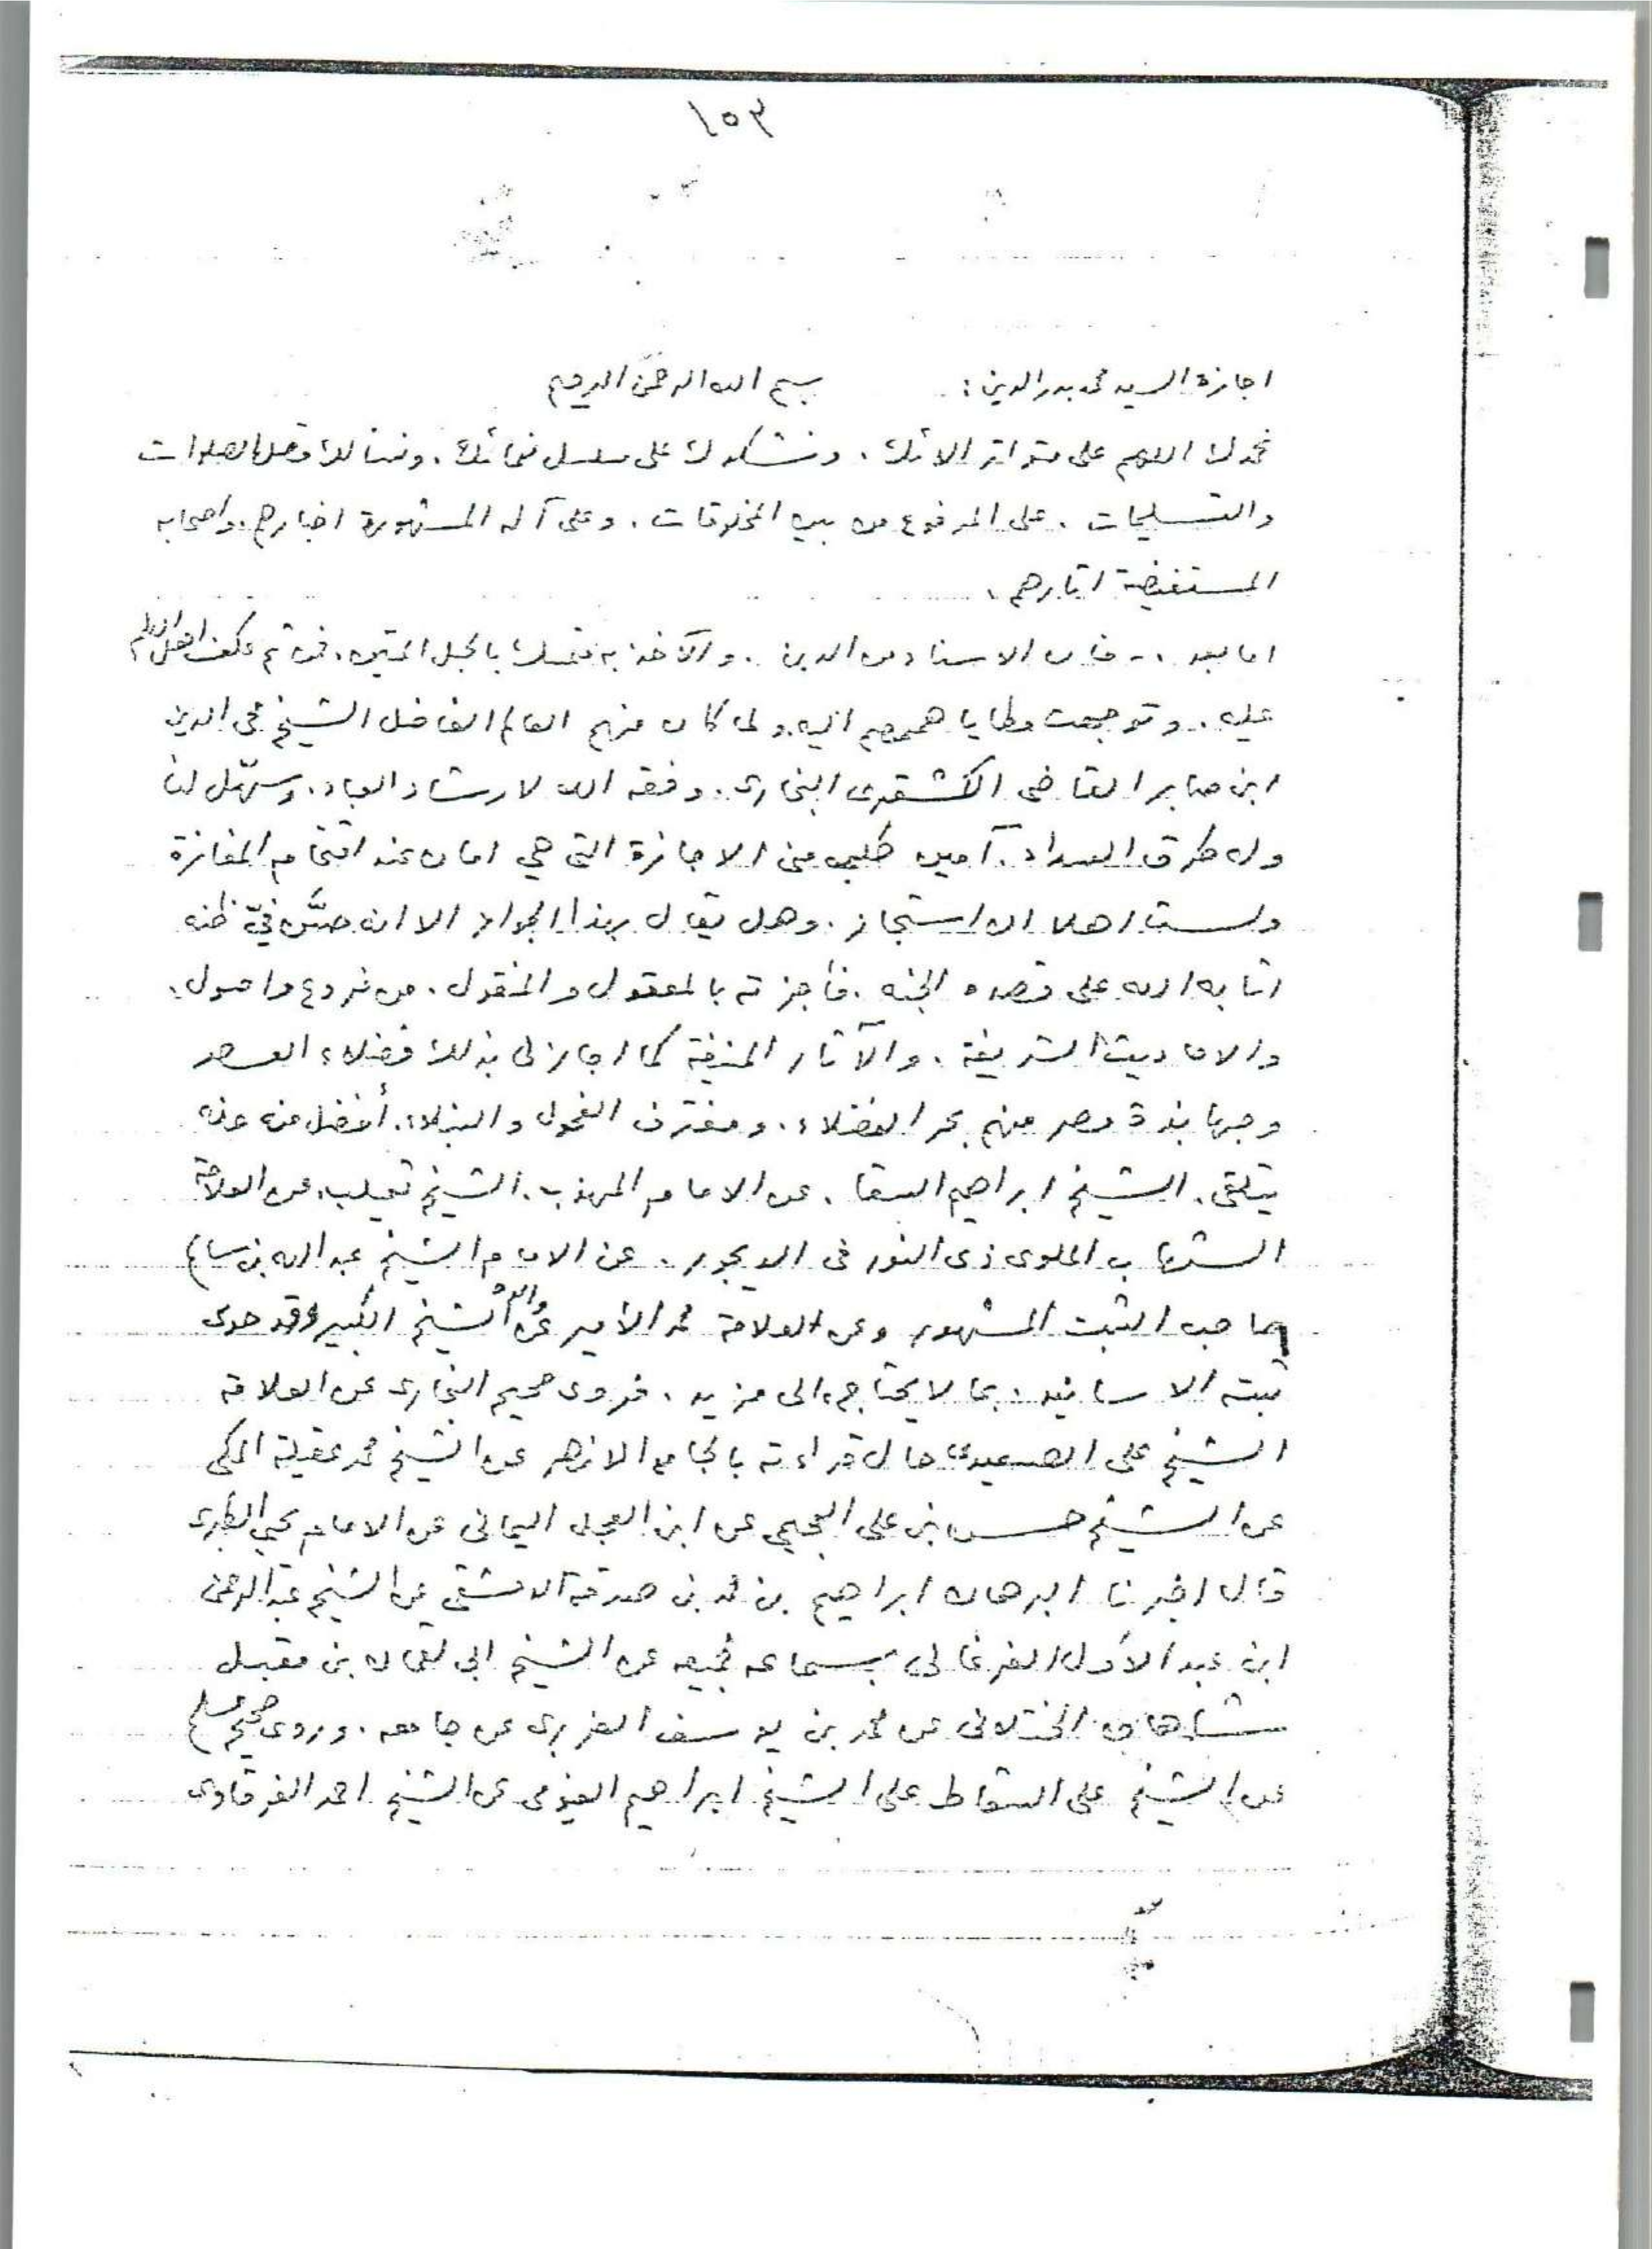 ١٥٣
اجازة السيد محمد بدر الدين : بسم الله الرحمن الرحيم
نحمدك اللهم على متواتر الائك . ونشكرك على مسلسل نعمائك . ونسألك افضل الصلوات
والتسليمات . على المرفوع من بين المخلوقات . وعلى آله المشهورة اخبارهم . واصحابه
المستفيضة اثارهم .
اما بعد .- فان الاسناد من الدين . والآخذ به متمسك بالحبل المتين . فمن ثم عكف اهل العلم
عليه . وتوجهت مطايا هممهم اليه . ولما كان منهم العالم الفاضل الشيخ محى الدين
ابن صابر القاضى الكشقرى البخارى . وفقه الله لارشاد العباد . وسهّل لنا
وله طرق السداد . آمين طلب منى الاجازة التى هي امان عند اقتحام المفازة
ولست اهلا ان استجاز . وهل يقال بهذا الجواز الا انه حسّن فيّ ظنه
اثابه الله على قصده الجنه . فأجزته بالمعقول والمنقول . من فروع واصول .
والاحاديث الشريفة . والآثار المنيفة كما اجازنى بذلك فضلاء العصر
وجهابذة مصر منهم بحر الفضلاء . ومغترف الفحول والنبلاء . أفضل من عنه
يتلقى . الشيخ ابراهيم السقا . عن الامام المهذب . الشيخ ثعيلب . عن العلامة
الشهاب الملوى ذى النور فى الديجور . عن الامام الشيخ عبد الله بن سالم
صاحب الثبت المشهور وعن العلامة محمد الأمير عن والده الشيخ الكبير وقد حوى
ثبته الاسانيد . بما لا يحتاج الى مزيد . فروى صحيح البخارى عن العلامة
الشيخ على الصعيدى حال قراءته بالجامع الازهر عن الشيخ محمد عقيلة المكى
عن الشيخ حسن بن على العجيمى عن ابن العجل اليمانى عن الامام يحيى الطبرى
قال اخبرنا البرهان ابراهيم بن محمد بن صدقة الدمشقى عن الشيخ عبد الرحمن
ابن عبد الأول الفرغانى بسماعه لجميعه عن الشيخ ابى لقمان بن مقبل
شاهان الختلانى عن محمد بن يوسف الفربرى عن جامعه . وروى صحيح مسلم
عن الشيخ على السقاط على الشيخ ابراهيم الفيومى عن الشيخ احمد الفرقاوى